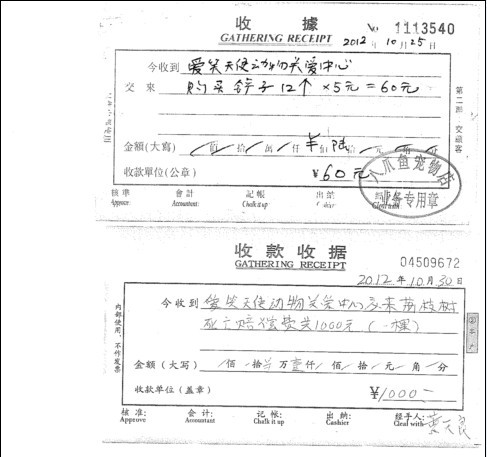 收 據
GATHERING RECEIPT
№ 1113540
2012 年 10 月 25 日
今收到 爱笑天使动物关爱中心
交 來 购买 铲子 12个 ×5元 = 60元
金額(大寫) 佰 拾 萬 仟 佰 陆 拾 元 角 分
收款單位(公章) ¥60元
八爪鱼宠物店
业务专用章
第二聯 交款客
核 準 會 計 記 帳 出 納
Approve Accountant Chalk it up Cashier
收 款 收 据
GATHERING RECEIPT
04509672
2012 年 10 月 30 日
内部使用，不作发票
今收到 爱笑天使动物关爱中心交来荔枝树
死亡赔偿费共1000元 (一棵)
金额（大写） 佰 拾 万 壹仟 佰 拾 元 角 分
收款单位（盖章） ¥1000
核 准: 会 计: 记 帐: 出 纳: 经手人:
Approve Accountant Chalk it up Cashier Cleal with